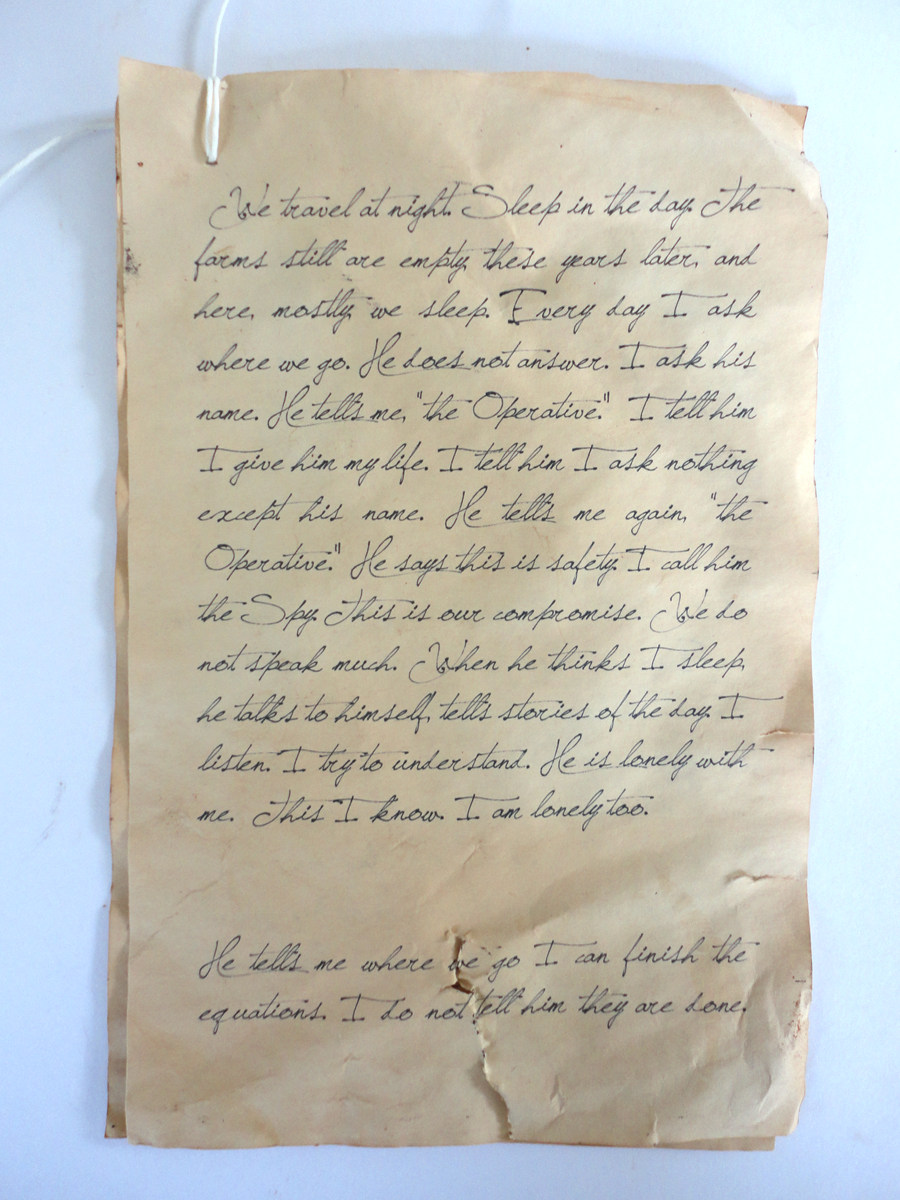 We travel at night. Sleep in the day. The
farms still are empty, these years later, and
here, mostly, we sleep. Every day I ask
where we go. He does not answer. I ask his
name. He tells me, "the Operative." I tell him
I give him my life. I tell him I ask nothing
except his name. He tells me again, "the
Operative." He says this is safety. I call him
the Spy. This is our compromise. We do
not speak much. When he thinks I sleep,
he talks to himself, tells stories of the day. I
listen. I try to understand. He is lonely with
me. This I know. I am lonely too.
He tells me where we go I can finish the
equations. I do not tell him they are done.